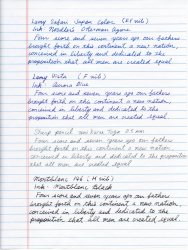 Lamy Safari Super Color (EF nib)
Ink: Noodler's Ottoman Azure
Four score and seven years ago our fathers
brought forth on this continent a new nation,
conceived in liberty and dedicated to the
proposition that all men are created equal
Lamy Vista (F nib)
Ink: Aurora Blue
Four score and seven years ago our fathers
brought forth on this continent a new nation,
conceived in liberty and dedicated to the
proposition that all men are created equal.
Sharp pencil Kuru Toga 0.5 mm
Four score and seven years ago our fathers
brought forth on this continent a new nation,
conceived in liberty and dedicated to the proposition
that all men are created equal
Montblanc 146 (M nib)
Ink: Montblanc Black
Four score and seven years ago our fathers
brought forth on this continent a new nation,
conceived in liberty and dedicated to the
proposition that all men are created equal